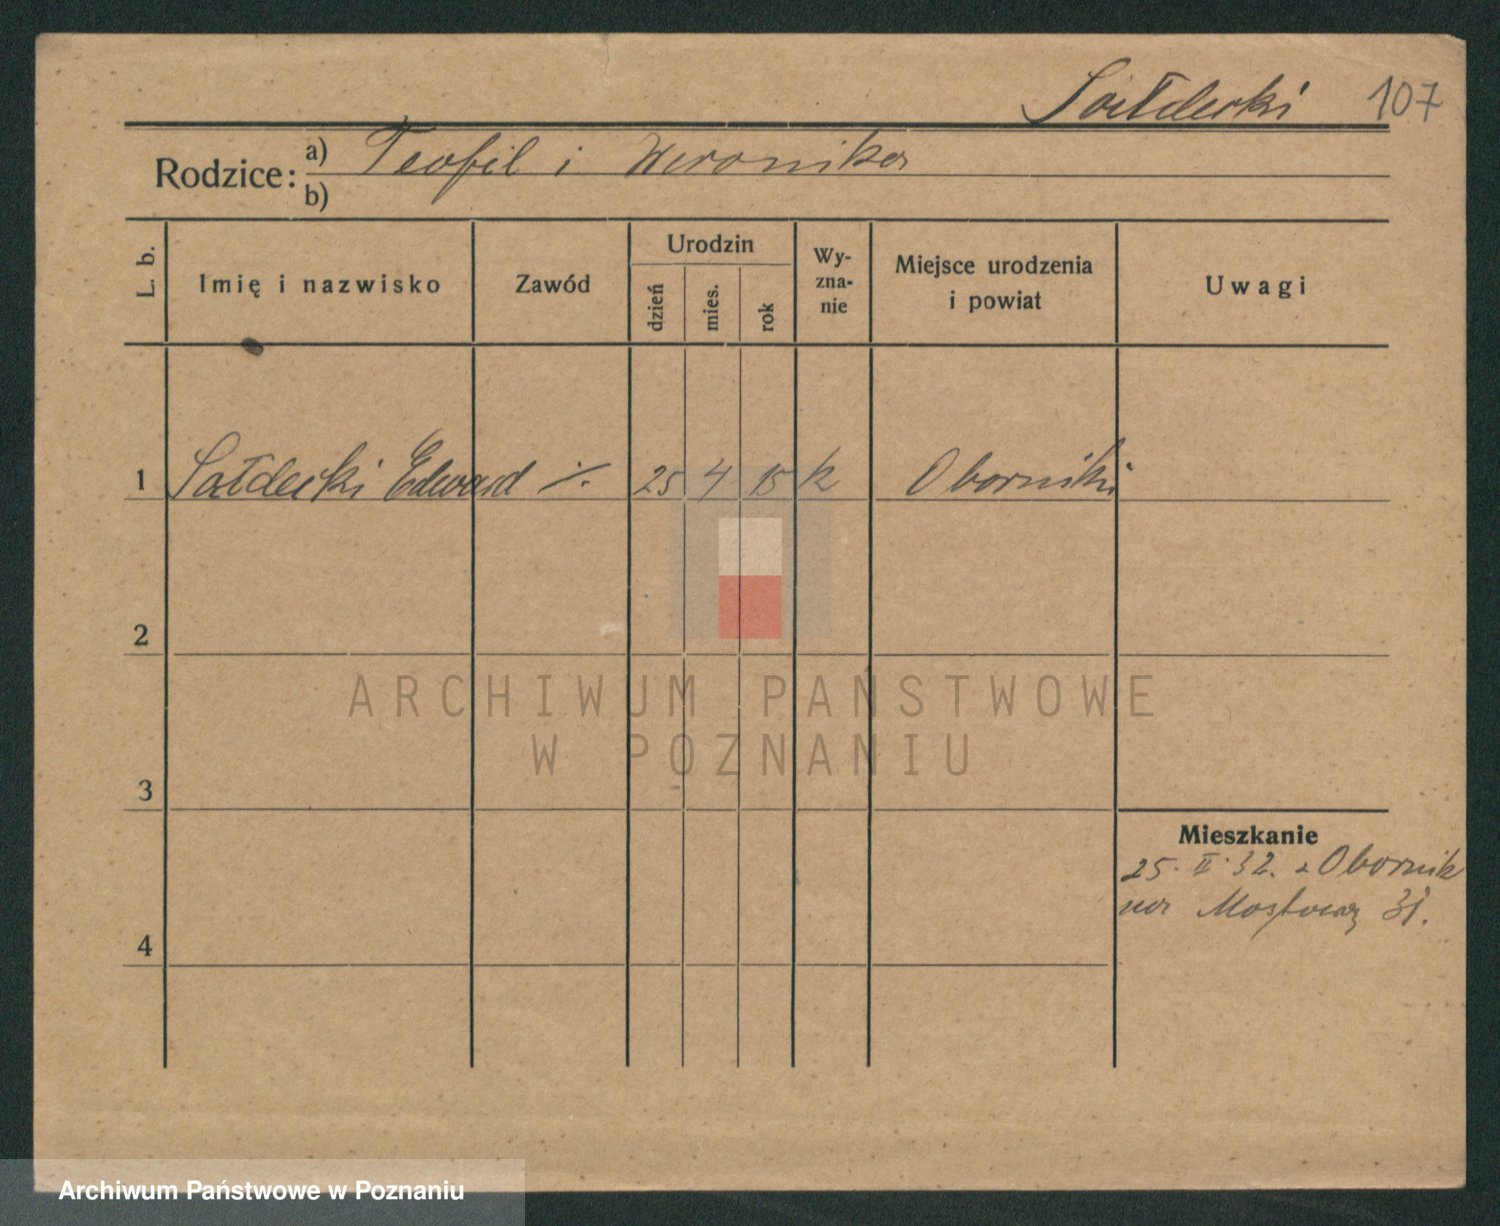 Sałdecki 107
Rodzice: a) Teofil i Weronika
b)
L. b. Imię i nazwisko Zawód Urodzin dzień mies. rok Wy-zna-nie Miejsce urodzenia i powiat Uwagi
1 Sałdecki Edward ·/. 25 4 15 k Oborniki
2
ARCHIWUM PAŃSTWOWE
W POZNANIU
3
Mieszkanie
25. II. 32. z Obornik
na Mostową 31.
4
Archiwum Państwowe w Poznaniu